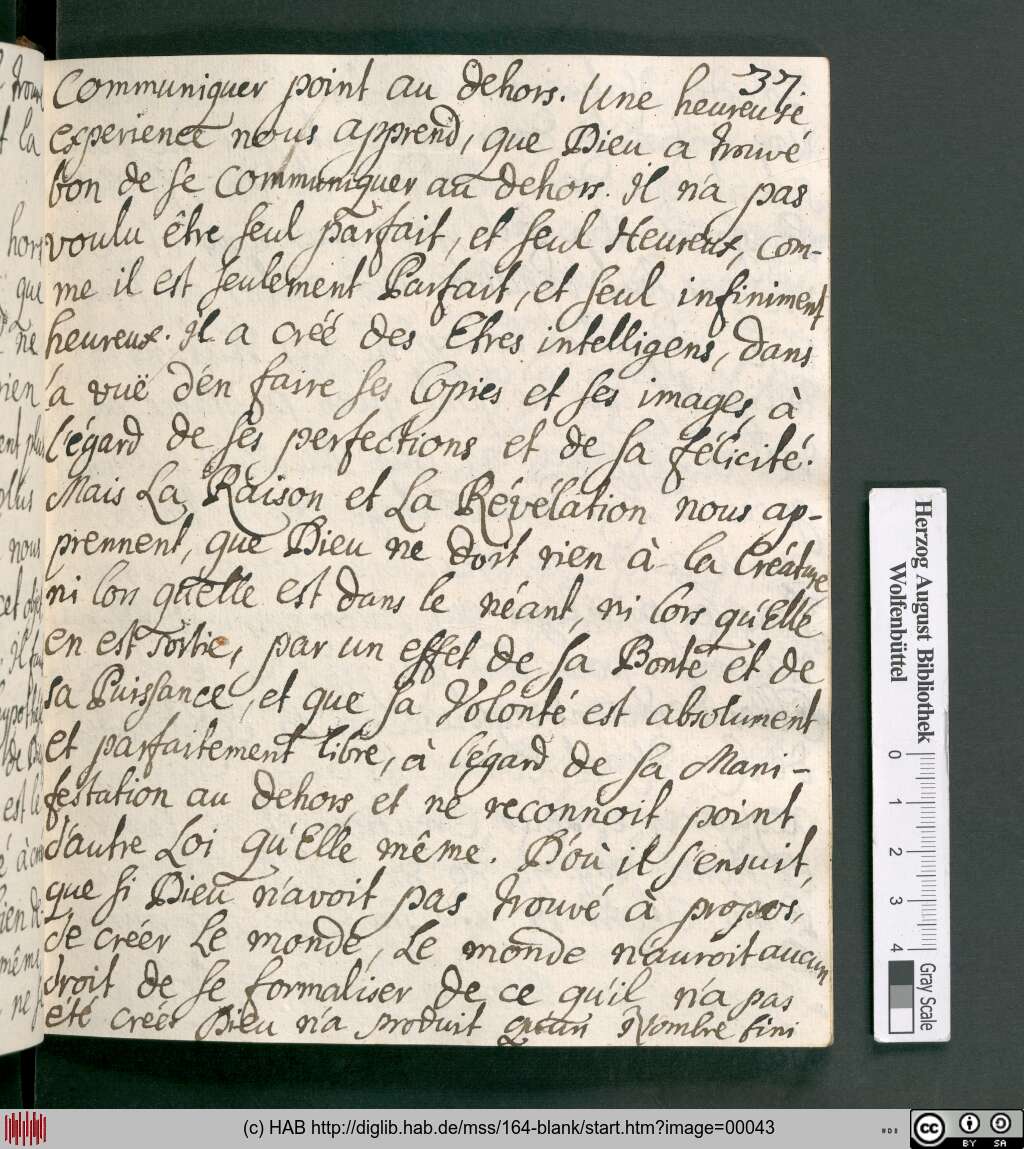 37.
Communiquer point au dehors. Une heureuse
experience nous apprend, que Dieu a trouvé
bon de se Communiquer au dehors. Il n'a pas
voulu être seul parfait, et seul Heureux, com-
me il est seulement Parfait, et seul infiniment
heureux. Il a créé des Etres intelligens, dans
la vuë d'én faire ses Copies et ses images, à
l'égard de ses perfections et de sa félicité.
Mais La Raison et La Révélation nous ap-
prennent, que Dieu ne doit rien à la Créature
ni lors qu'elle est dans le néant, ni lors qu'Elle
en est sortie, par un effet de sa Bonté et de
sa Puissance, et que sa Volonté est absolument
et parfaitement libre, à l'égard de sa Mani-
festation au dehors, et ne reconnoit point
d'autre Loi qu'Elle même. D'où il s'ensuit,
que si Dieu n'avoit pas trouvé à propos,
de créér Le monde, Le monde n'auroit aucun
droit de se formaliser de ce qu'il n'a pas
été créér Dieu n'a produit qu'un Nombre fini
trouv
la
hors
que
ne
rien
ent plus
plus
nous
cet obje
Il fau
hypothé
de D
est le
é à
bien
même
ne
Herzog August Bibliothek
Wolfenbüttel
0 1 2 3 4
Gray Scale
(c) HAB http://diglib.hab.de/mss/164-blank/start.htm?image=00043
cc
BY SA